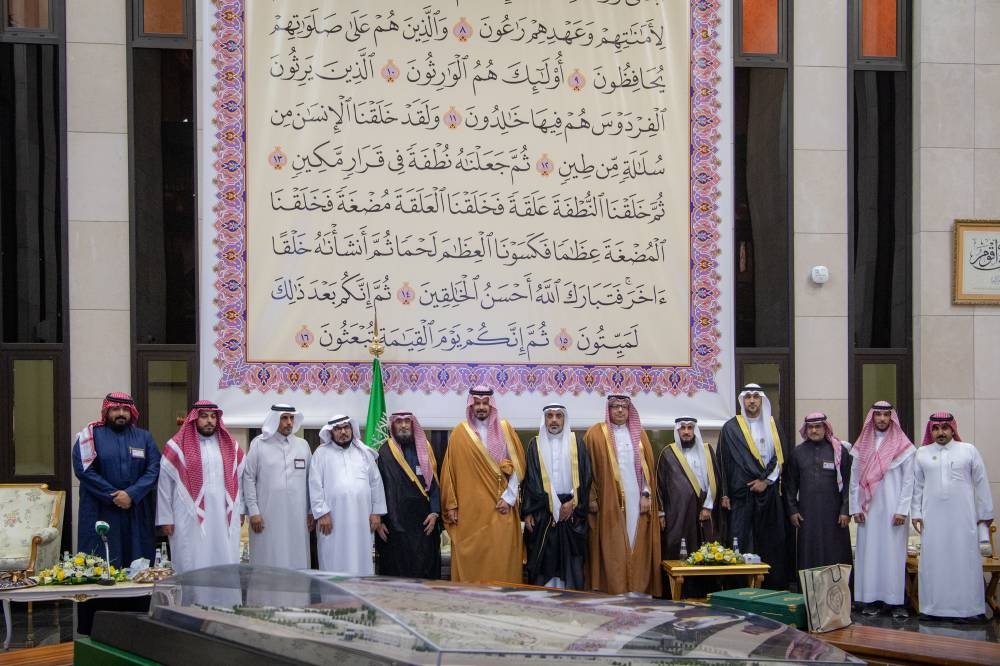 لِأَمَٰنَٰتِهِمْ وَعَهْدِهِمْ رَٰعُونَ ٨ وَٱلَّذِينَ هُمْ عَلَىٰ صَلَوَٰتِهِمْ
يُحَافِظُونَ ٩ أُوْلَٰٓئِكَ هُمُ ٱلْوَٰرِثُونَ ١٠ ٱلَّذِينَ يَرِثُونَ
ٱلْفِرْدَوْسَ هُمْ فِيهَا خَٰلِدُونَ ١١ وَلَقَدْ خَلَقْنَا ٱلْإِنسَٰنَ مِن
سُلَٰلَةٍ مِّن طِينٍ ١٢ ثُمَّ جَعَلْنَٰهُ نُطْفَةً فِى قَرَارٍ مَّكِينٍ ١٣
ثُمَّ خَلَقْنَا ٱلنُّطْفَةَ عَلَقَةً فَخَلَقْنَا ٱلْعَلَقَةَ مُضْغَةً فَخَلَقْنَا
ٱلْمُضْغَةَ عِظَٰمًا فَكَسَوْنَا ٱلْعِظَٰمَ لَحْمًا ثُمَّ أَنشَأْنَٰهُ خَلْقًا
ءَاخَرَ فَتَبَارَكَ ٱللَّهُ أَحْسَنُ ٱلْخَٰلِقِينَ ١٤ ثُمَّ إِنَّكُم بَعْدَ ذَٰلِكَ
لَمَيِّتُونَ ١٥ ثُمَّ إِنَّكُمْ يَوْمَ ٱلْقِيَٰمَةِ تُبْعَثُونَ ١٦